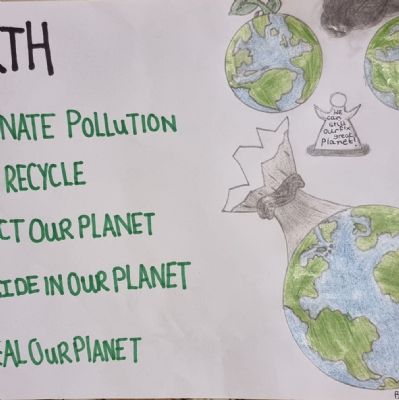 RTH
NATE POLLUTION
RECYCLE
CT OUR PLANET
IDE IN OUR PLANET
EAL OUR PLANET
We
can
still
fix
Our
great
Planet!